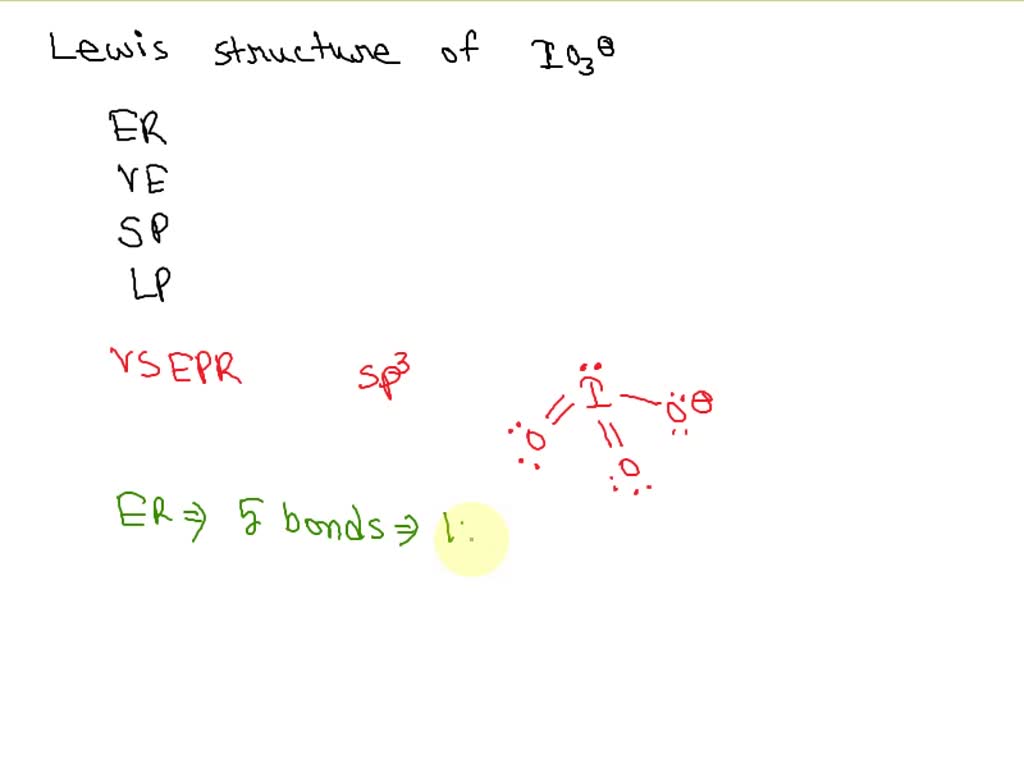 Lewis structure of IO₃⊖
ER
VE
SP
LP
VSEPR sp³
I O⊖
O
O
ER ⇒ 5 bonds ⇒ 1